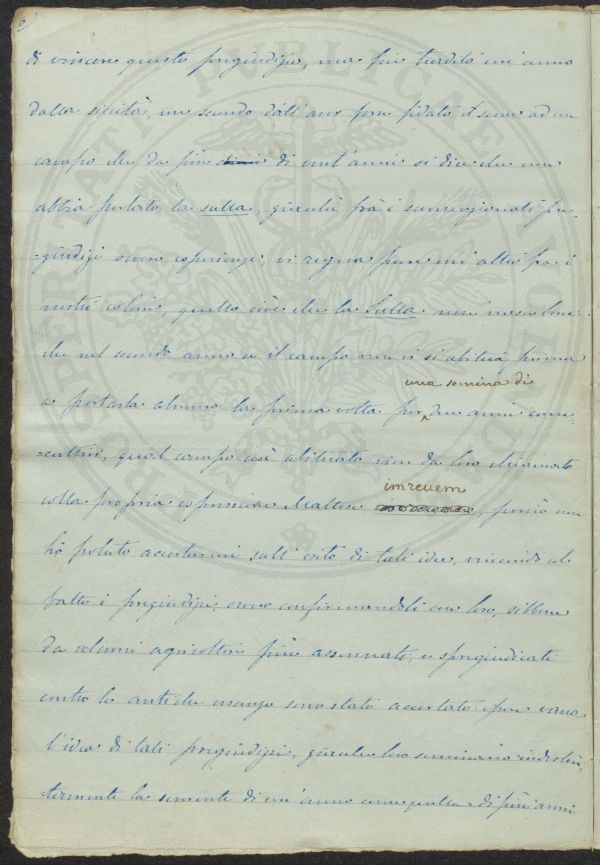 6
di vincere questo pregiudizio, ma fui tradito un anno
dalla siccità, un secondo dall' aver forse fidato il seme ad un
campo che da più di vent' anni si dice che non
abbia portato la sulla, giacchè frà i summenzionati pre-
=giudizi ovvero esperienze, vi regna pure un altro fra i
nostri coloni, quello cioè che la Sulla non nasce bene
che nel secondo anno se il campo non vi si abitua prima
una semina di
a portarla almeno la prima volta per due anni conse-
=cutivi, qual campo così abituato vien da loro chiamato
colla propria espressione Maltese imreuem, perciò non
hò potuto accertarmi sull' esito di tali idee, vincendo col
fatto i pregiudizi, ovvero confirmandoli con loro, sebbene
da alcuni agricoltori più assennati, e spregiudicati
contro le antiche usanze sono stato accertato esser vana
l'idea di tali pregiudizi, giacchè loro seminano indistin-
tamente la semente di un' anno come quella di più anni